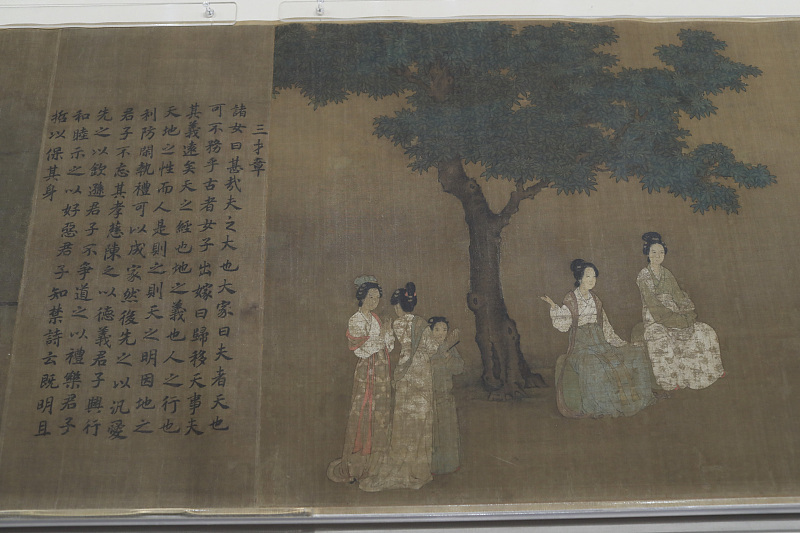 三才章
諸女曰甚哉夫之大也大家曰夫者天也
可不務乎古者女子出嫁曰歸移天事夫
其義遠矣天之經也地之義也人之行也
天地之性而人是則之則天之明因地之
利防閑執禮可以成家然後先之以汎愛
君子不忘其孝慈陳之以德義君子興行
先之以欽遜君子不爭道之以禮樂君子
和睦示之以好惡君子知禁詩云既明且
哲以保其身